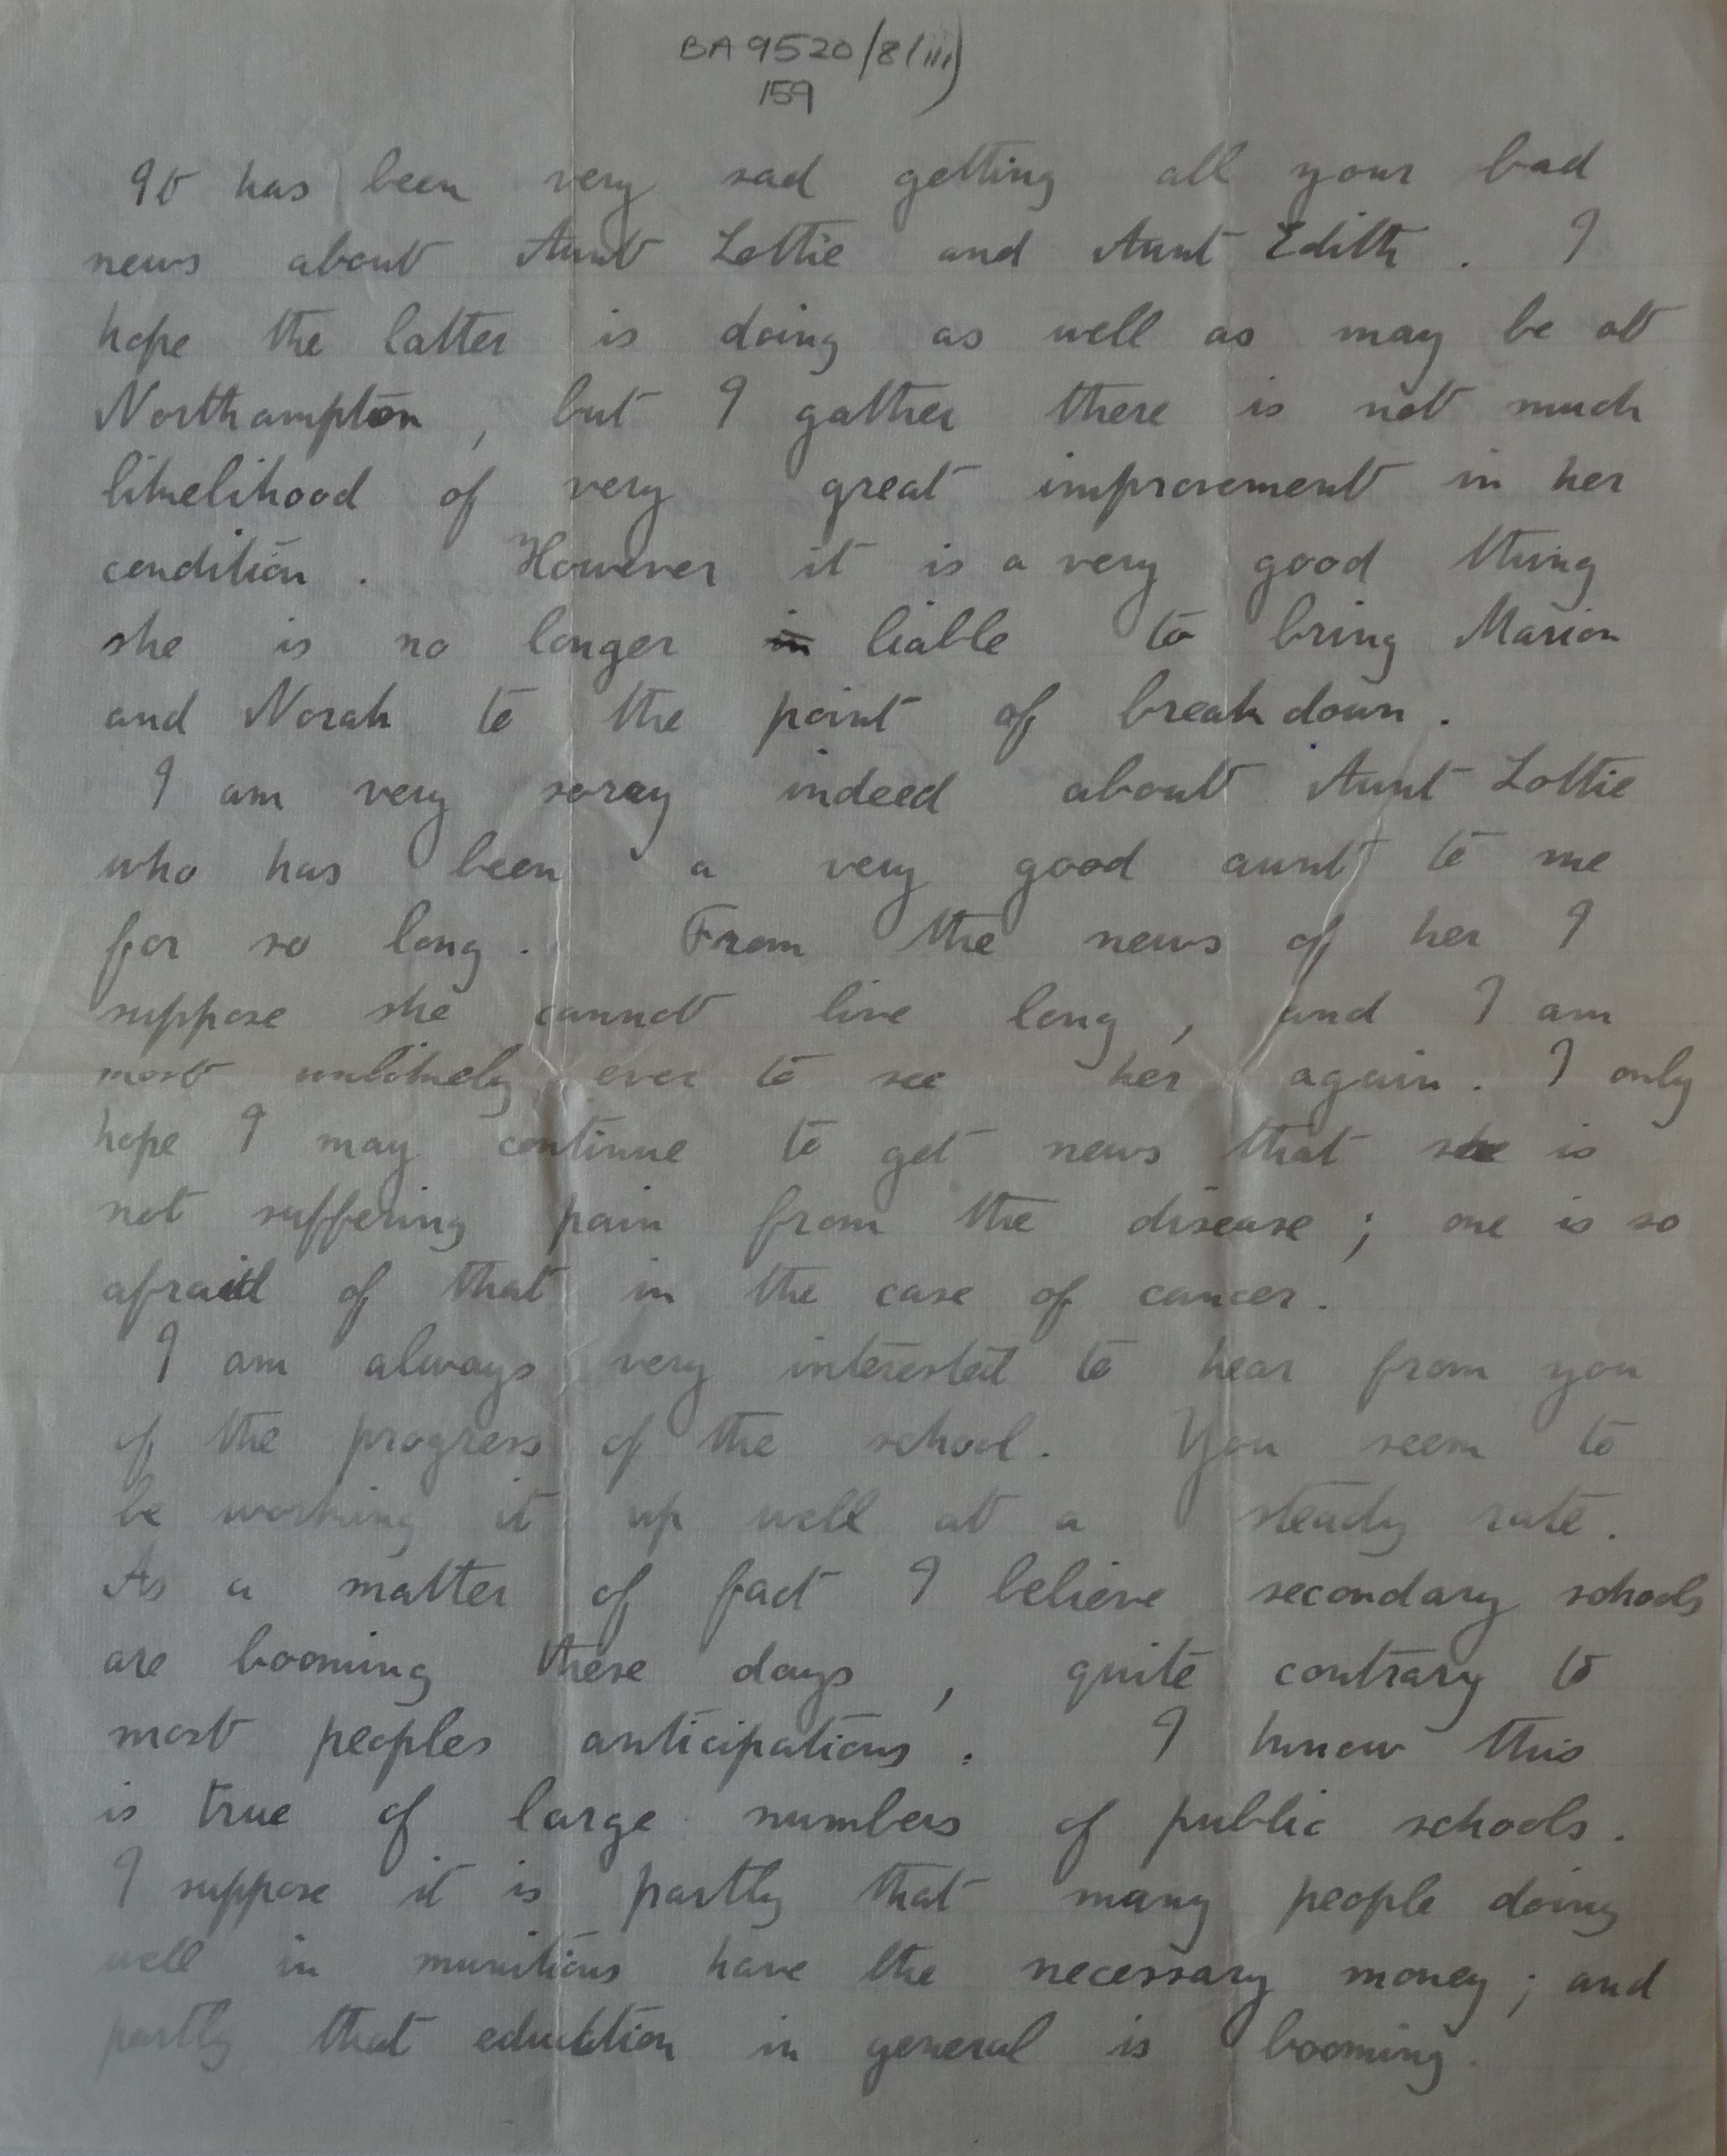 BA 9520/8(iii)
159
It has been very sad getting all your bad
news about Aunt Lottie and Aunt Edith. I
hope the latter is doing as well as may be at
Northampton, but I gather there is not much
likelihood of very great improvement in her
condition. However it is a very good thing
she is no longer in liable to bring Marion
and Norah to the point of breakdown.
I am very sorry indeed about Aunt Lottie
who has been a very good aunt to me
for so long. From the news of her I
suppose she cannot live long, and I am
most unlikely ever to see her again. I only
hope I may continue to get news that she is
not suffering pain from the disease; one is so
afraid of that in the case of cancer.
I am always very interested to hear from you
of the progress of the school. You seem to
be working it up well at a steady rate.
As a matter of fact I believe secondary schools
are booming these days, quite contrary to
most peoples anticipations. I know this
is true of large numbers of public schools.
I suppose it is partly that many people doing
well in munitions have the necessary money; and
partly that eduction in general is booming.